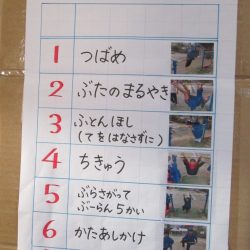 1 つばめ
2 ぶたのまるやき
3 ふとんほし
(てをはなさずに)
4 ちきゅう
5 ぶらさがって
ぶーらん5かい
6 かたあしかけ